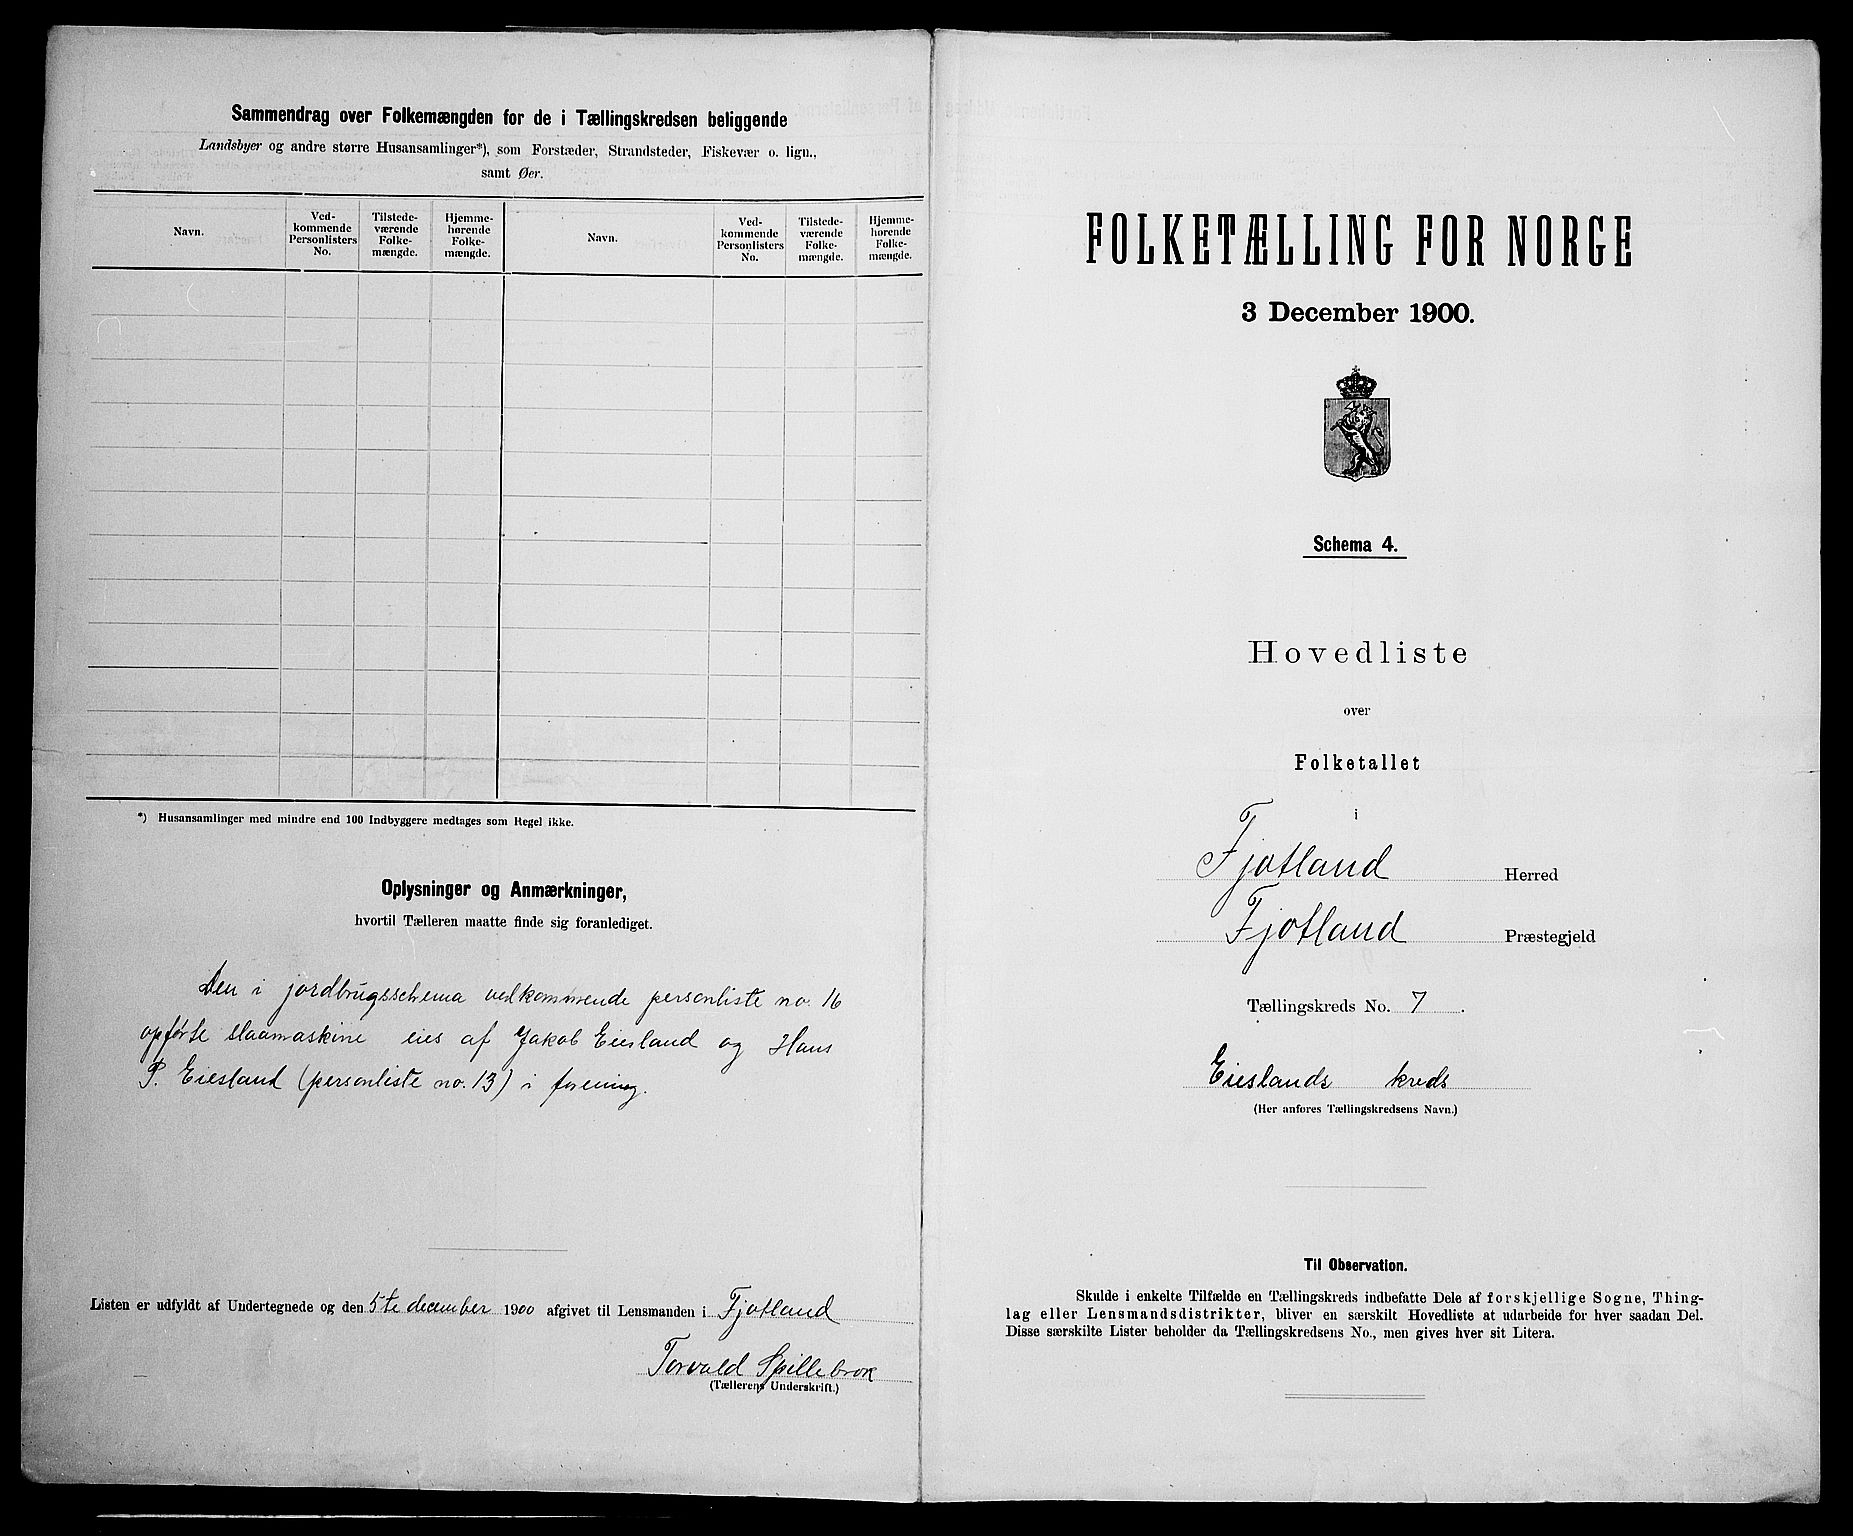 Sammendrag over Folkemængden for de i Tællingskredsen beliggende
Landsbyer og andre større Husansamlinger*), som Forstæder, Strandsteder, Fiskevær o. lign.,
samt Øer.
Navn.
Ved-
kommende
Personlisters
No.
Tilstede-
værende
Folke-
mængde.
Hjemme-
hørende
Folke-
mængde.
Navn.
Ved-
kommende
Personlisters
No.
Tilstede-
værende
Folke-
mængde.
Hjemme-
hørende
Folke-
mængde.
*) Husansamlinger med mindre end 100 Indbyggere medtages som Regel ikke.
Oplysninger og Anmærkninger,
hvortil Tælleren maatte finde sig foranlediget.
Den i jordbrugsschema vedkommende personliste no. 16
opførte slaamaskine eies af Jakob Eiesland og Hans
P. Eiesland (personliste no. 13) i forening.
Listen er udfyldt af Undertegnede og den 5te december 1900 afgivet til Lensmanden i Fjotland
Torvald Spillebrok
(Tællerens Underskrift.)
FOLKETÆLLING FOR NORGE
3 December 1900.
Schema 4.
Hovedliste
over
Folketallet
i
Fjotland Herred
Fjotland Præstegjeld
Tællingskreds No. 7.
Eieslands kreds
(Her anføres Tællingskredsens Navn.)
Til Observation.
Skulde i enkelte Tilfælde en Tællingskreds indbefatte Dele af forskjellige Sogne, Thing-
lag eller Lensmandsdistrikter, bliver en særskilt Hovedliste at udarbeide for hver saadan Del.
Disse særskilte Lister beholder da Tællingskredsens No., men gives hver sit Litera.